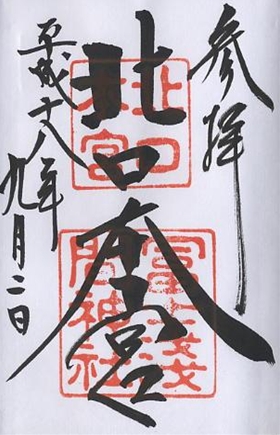 参拝
北口本宮
平成十八年
九月二日
北口
本宮
冨士淺
間神社